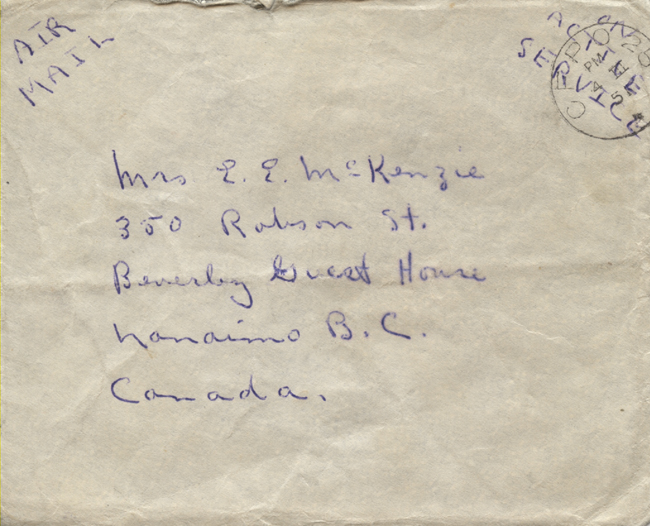 AIR
MAIL
ON
ACTIVE
SERVICE
Mrs E. E. McKenzie
350 Robson St.
Beverley Guest House
Nanaimo B.C.
Canada.